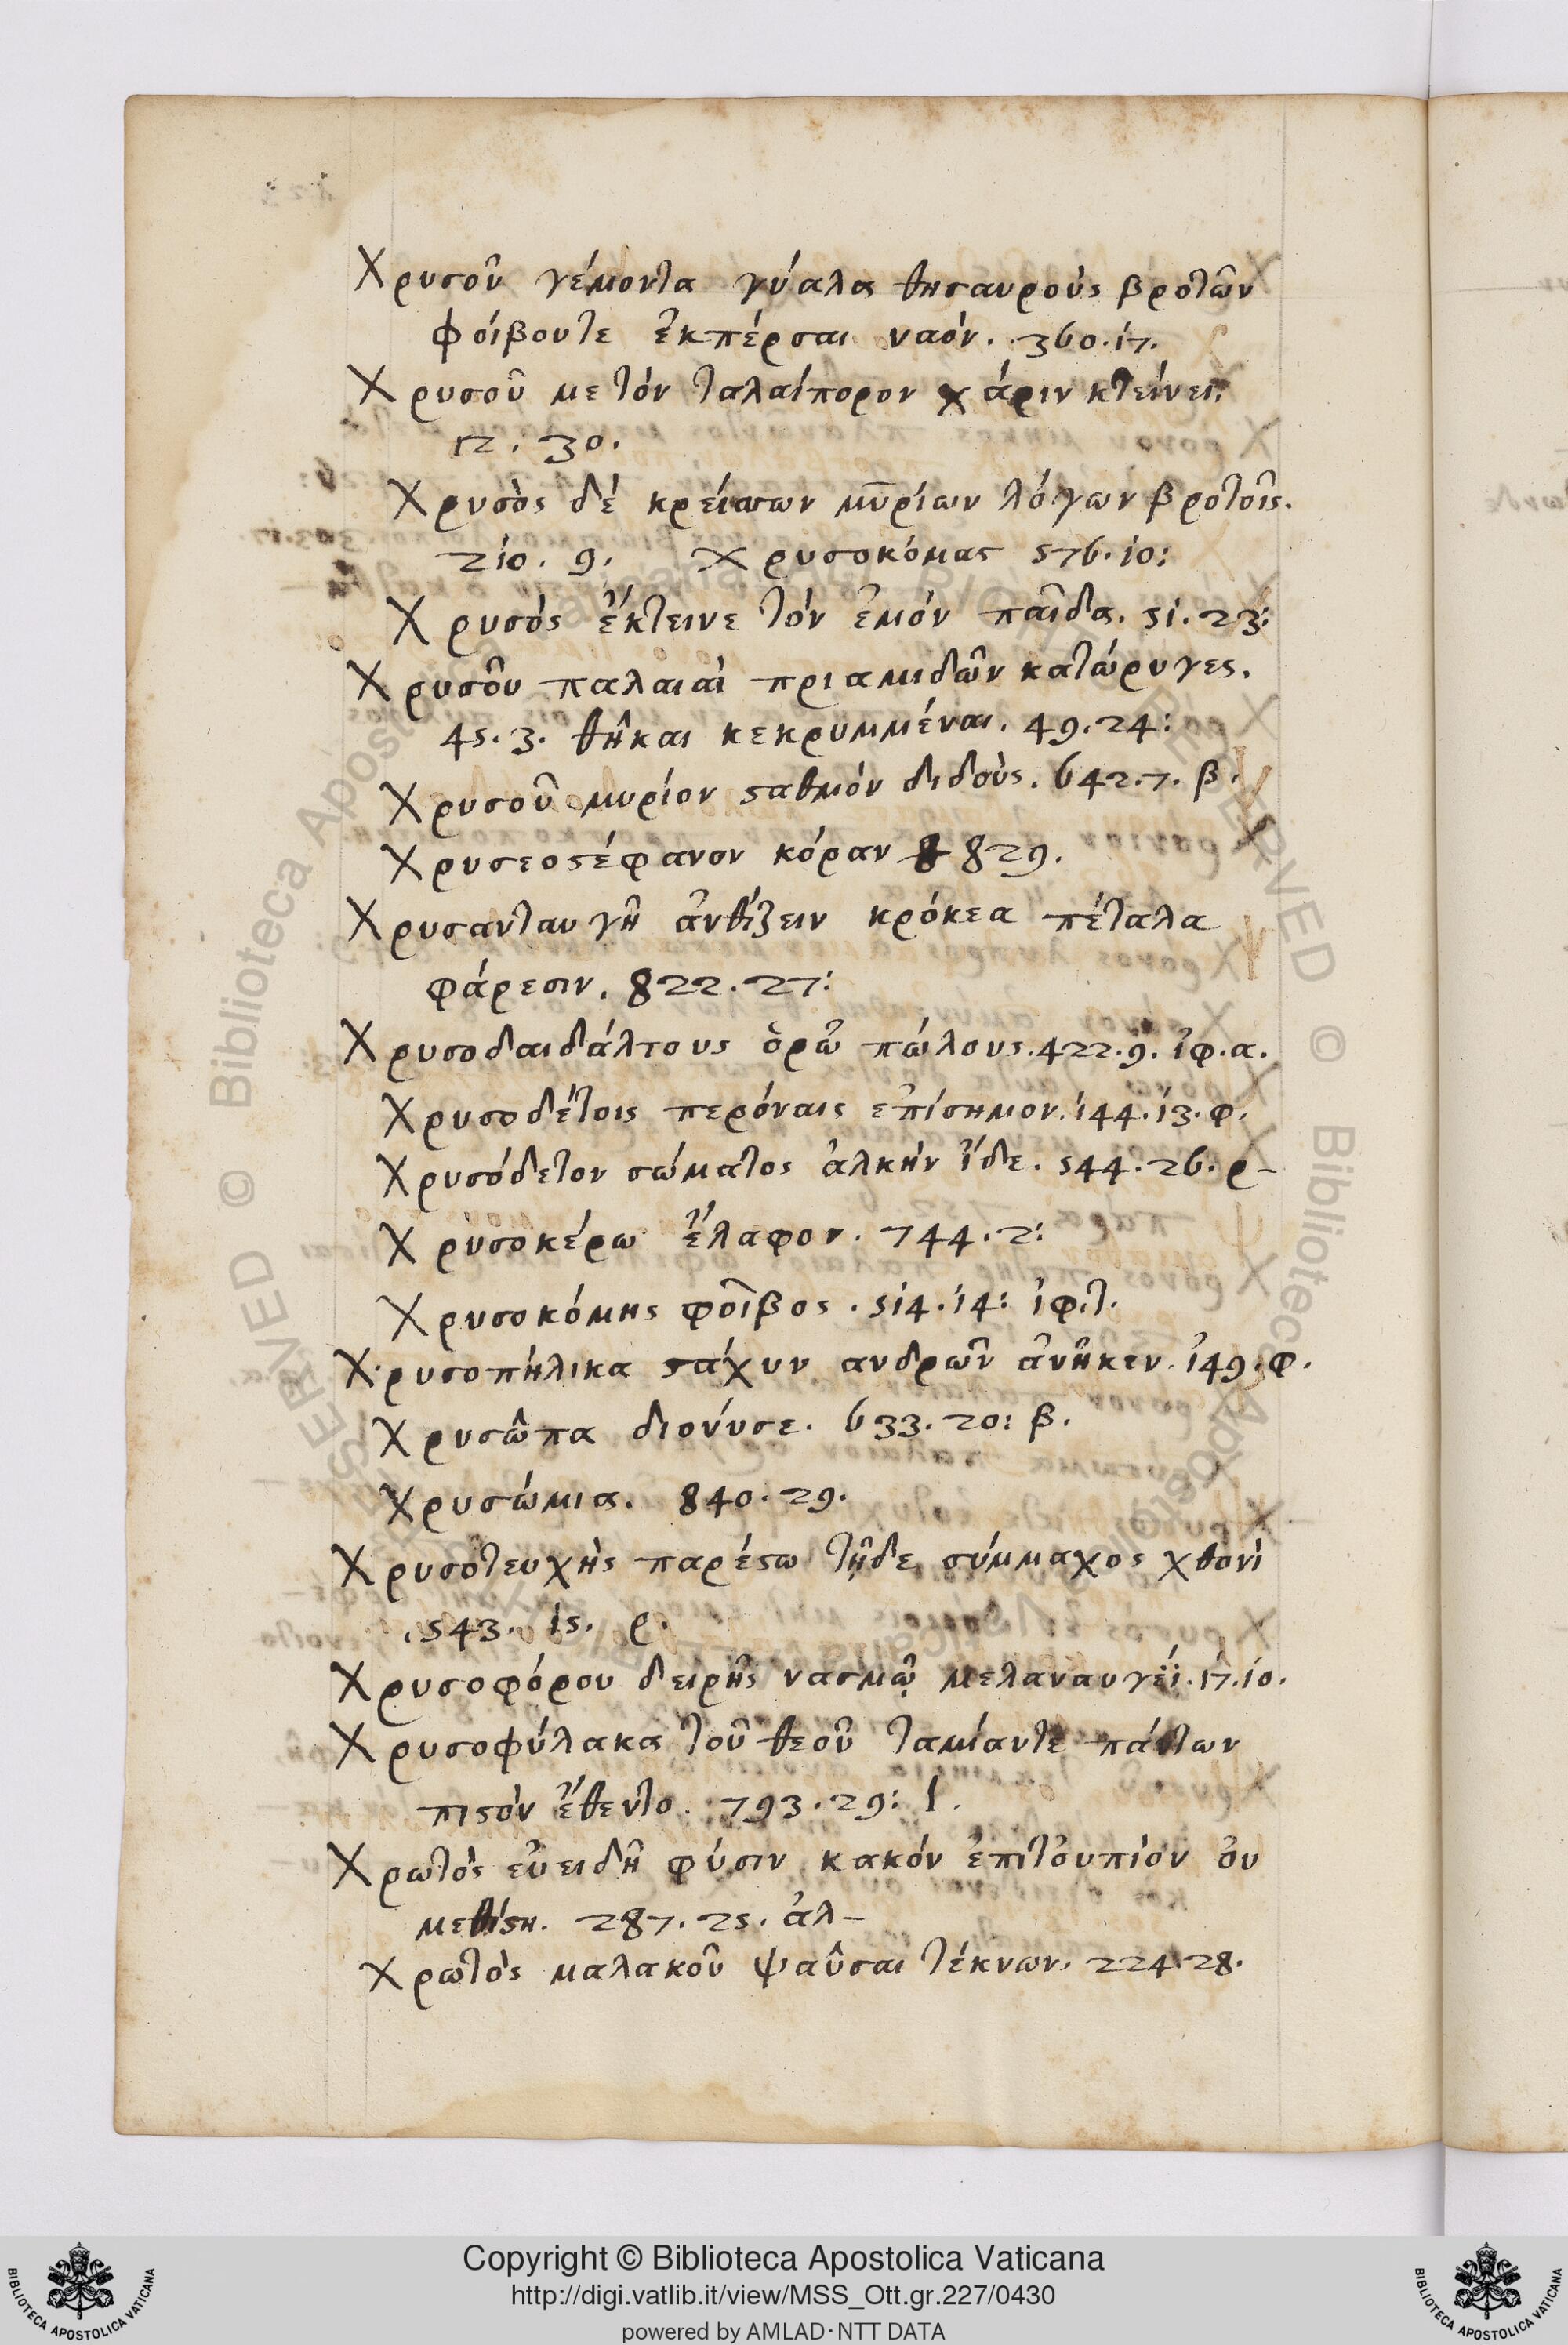 Χρυσοῦ γέμοντα γύαλα θησαυροὺς βροτῶν
φοίβουτε ἐκπέρσαι ναόν. 360.17.
Χρυσοῦ με τὸν ταλαίπορον χάριν κτείνει.
12. 30.
Χρυσὸς δὲ κρείσσων μυρίων λόγων βροτοῖς.
210. 9. Χρυσοκόμας 576.10:
Χρυσὸς ἔκτεινε τὸν ἐμὸν παῖδα. 51.23:
Χρυσοῦ παλαιαὶ πριαμιδῶν κατώρυγες.
45.3. θῆκαι κεκρυμμέναι. 49.24:
Χρυσοῦ μυρίον σταθμόν διδοὺς. 642.7. β.
Χρυσεοστέφανον κόραν 829.
Χρυσανταυγῆ ἀνθίζειν κρόκεα πέταλα
φάρεσιν. 822.27:
Χρυσοδαιδάλτους ὁρῶ πώλους. 422.9. ἰφ.α.
Χρυσοδέτοις περόναις ἐπίσημον. 144.13. φ.
Χρυσόδετον σώματος ἀλκὴν ἴδε. 544.26. ρ-
Χρυσοκέρω ἔλαφον. 744.2:
Χρυσοκόμης φοῖβος. 514.14: ἰφ.τ.
Χρυσοπήλικα στάχυν ανδρῶν ἀνῆκεν. 149. φ.
Χρυσῶπα διονύσε. 633.20: β.
Χρυσώμια. 840.29.
Χρυσοτευχὴς παρέστω τῇδε σύμμαχος χθονὶ
.543. 15. ρ.
Χρυσοφόρου δειρῆς νασμῷ μελαναυγέϊ. 17.10.
Χρυσοφύλακα τοῦ θεοῦ ταμίαντε πάντων
πιστὸν ἔθεντο. 793.29: ἰ.
Χρωτὸς εὐειδῆ φύσιν κακὸν ἐπιτὀυπιὸν ὀυ
μεθίστη. 287.25. ἀλ-
Χρωτὸς μαλακοῦ ψαῦσαι τέκνων. 224.28.
Copyright © Biblioteca Apostolica Vaticana
http://digi.vatlib.it/view/MSS_Ott.gr.227/0430
powered by AMLAD·NTT DATA
BIBLIOTECA APOSTOLICA VATICANA
BIBLIOTECA APOSTOLICA VATICANA